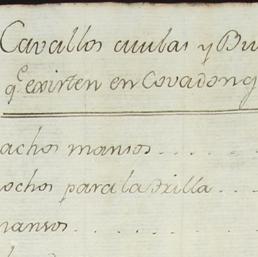 Cavallos mulas y Bu
qe existen en Covadong
achos mansos
ochos para la trilla
mansos